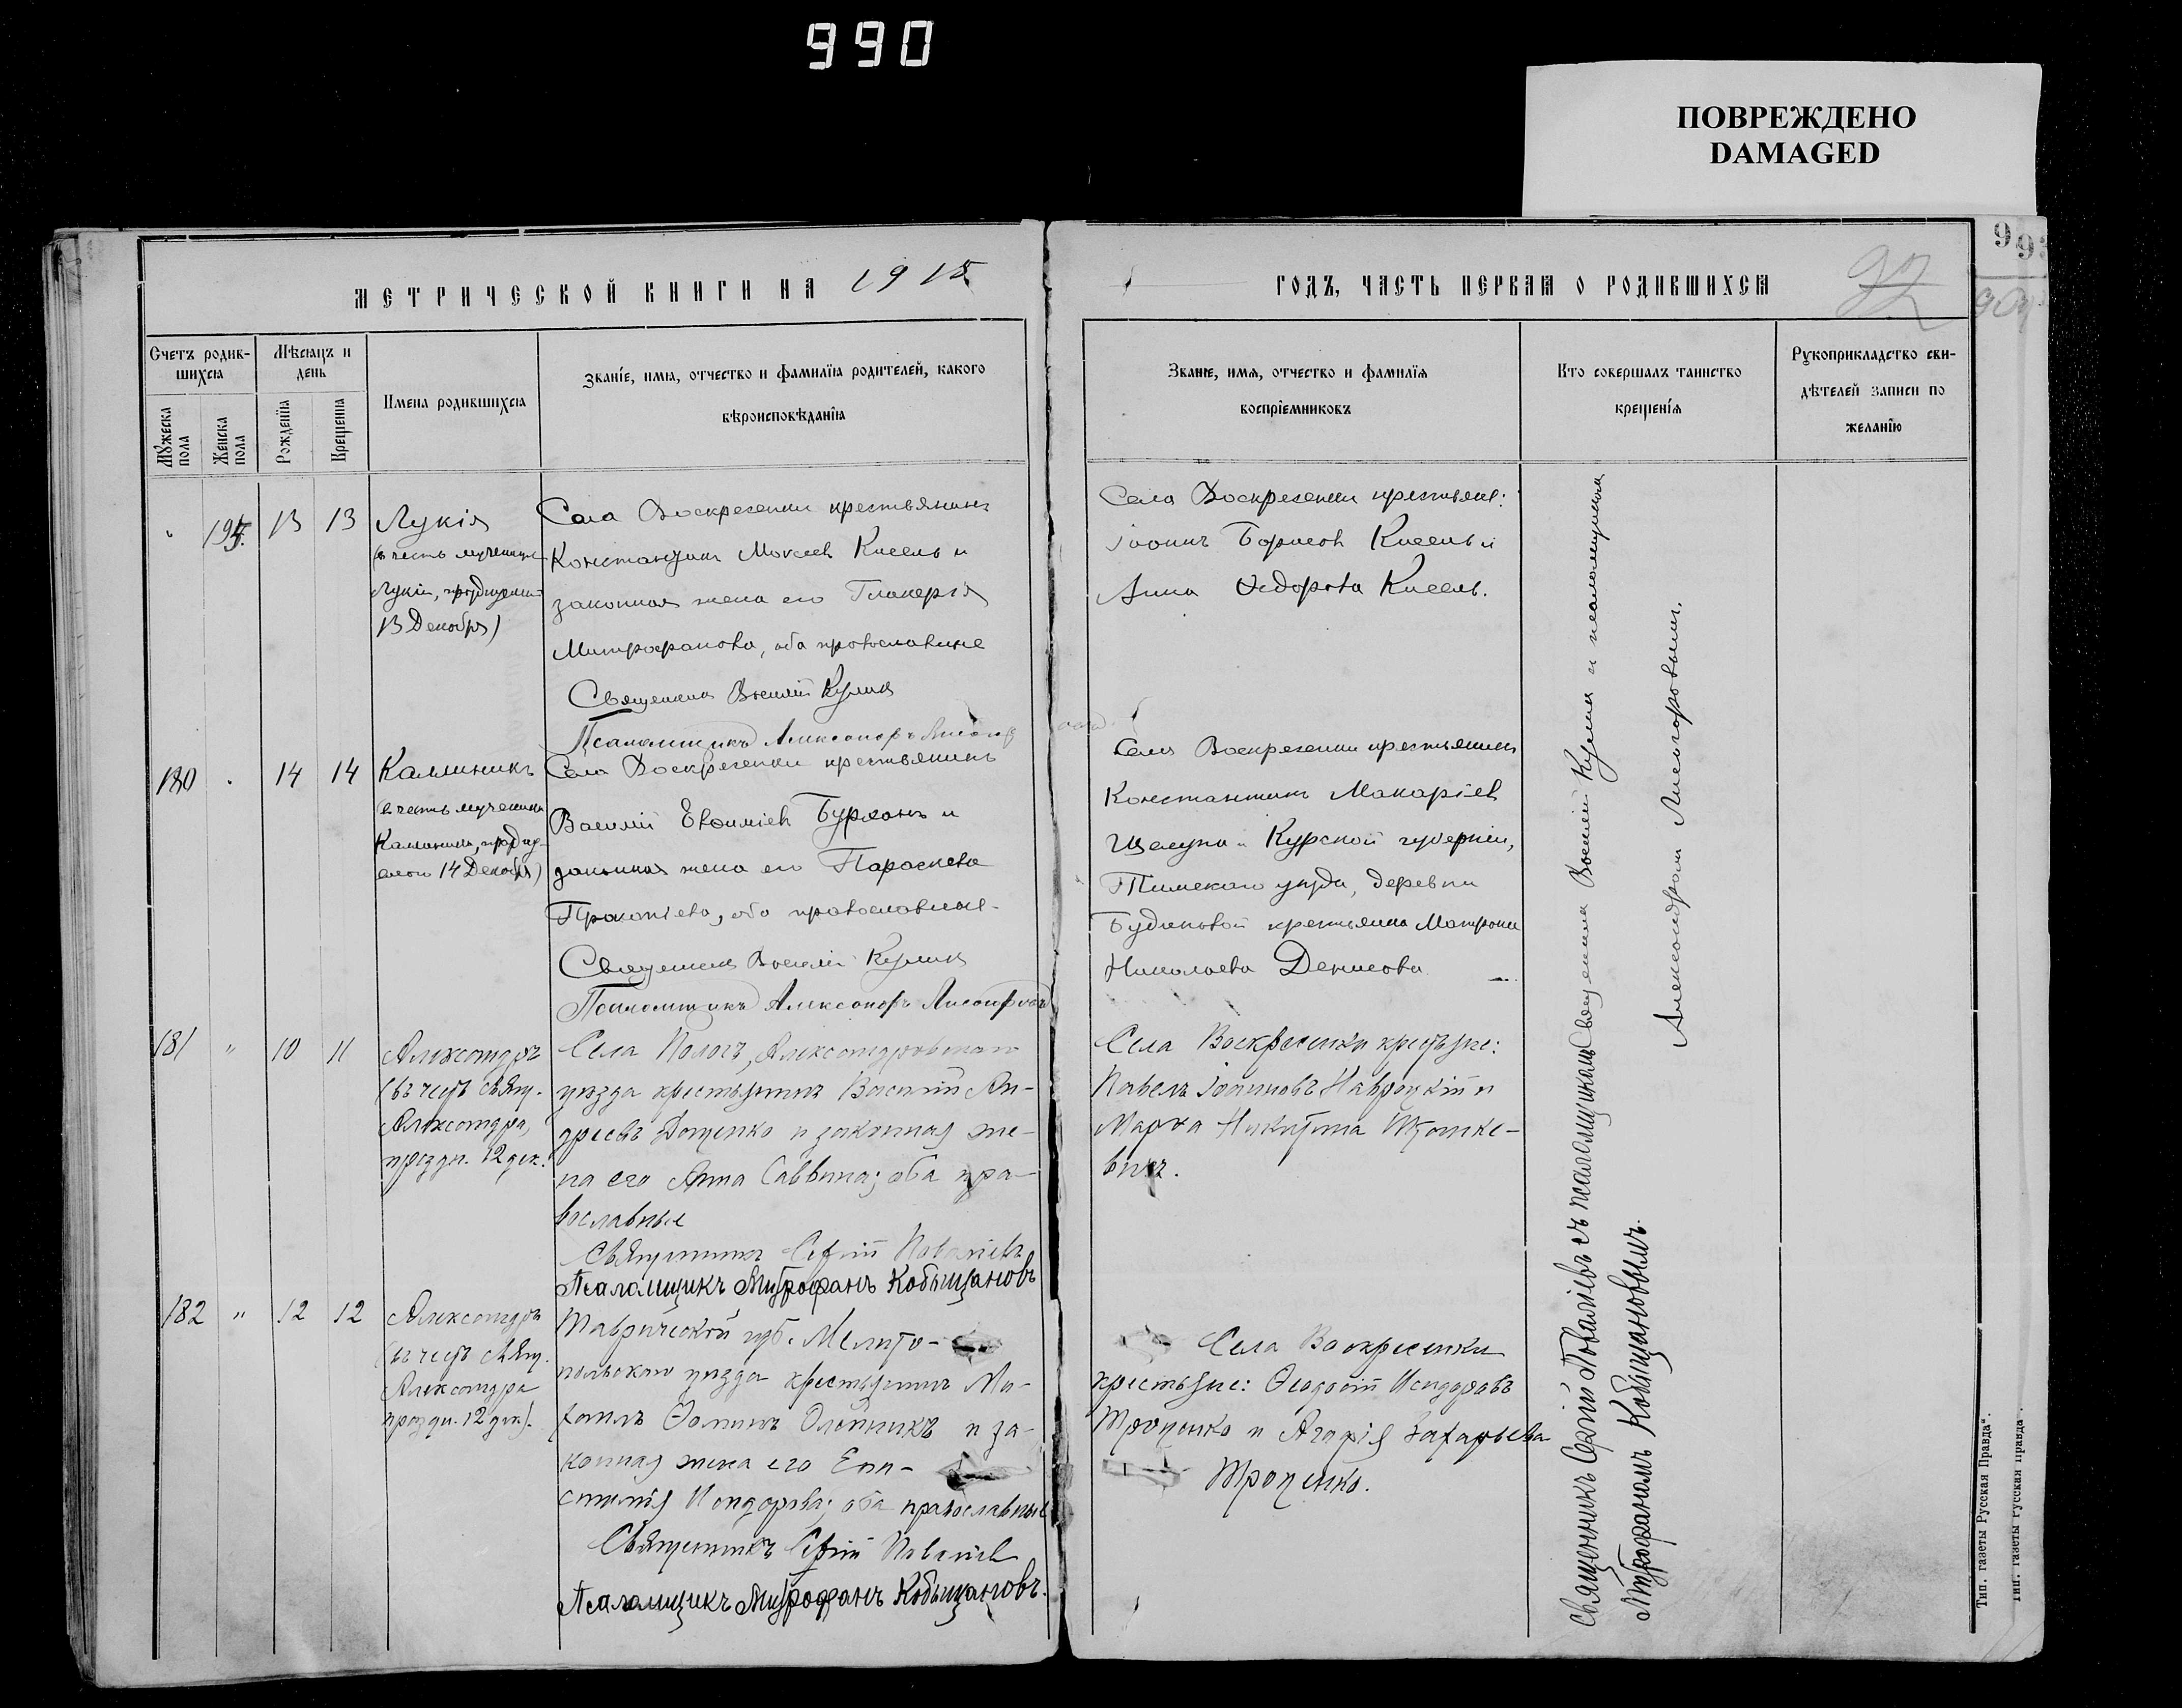 990
ПОВРЕЖДЕНО
DAMAGED
МЕТРИЧЕСКОЙ КНИГИ НА 1915
ГОДЪ, ЧАСТЬ ПЕРВАЯ О РОДИВШИХСЯ
Счетъ родив-
шихся
Мѣсяцъ и
день
Мужеска
пола
Женска
пола
Рожденія
Крещенія
Имена родившихся
Званіе, имя, отчество и фамилія родителей, какого
вѣроисповѣданія
Званіе, имя, отчество и фамилія
воспріемниковъ
Кто совершалъ таинство
крещенія
Рукоприкладство сви-
дѣтелей записи по
желанію
13 13
Лукія
(въ честь мученицы
Лукіи, празднуемой
13 Декабря)
Села Воскресенки крестьянинъ
Константинъ Моисеев Кисель и
законная жена его Гликерія
Митрофанова, оба православные
Священникъ Василій Кулик
Псаломщикъ Александръ
Села Воскресенки крестьяне:
Іоаннъ Борисов Кисель и
Анна Ѳедорова Кисель.
180 " 14 14
Каллиникъ
(въ честь мученика
Каллиника, праздну-
емого 14 Декабря)
Села Воскресенки крестьянинъ
Василій Евфиміев и
законная жена его Параскева
Прокопіева, оба православные
Священникъ Василій Кулик
Псаломщикъ Александръ Лисогоровъ
Села Воскресенки крестьянинъ
Константинъ Макаріев
и Курской губерніи,
Тимскаго уѣзда, деревни
крестьянка Матрона
Николаева Денисова
181 " 10 11
Александръ
(въ честь свящ.
Александра,
праздн. 12 дек.
Села Пологъ, Александровскаго
уѣзда крестьянинъ Василій Ан-
дреевъ Доценко и законная же-
на его Анна Саввина; оба пра-
вославные
Священникъ Сергій Поваліевъ
Псаломщикъ Митрофанъ Кобыщановъ
Села Воскресенки крестьяне:
Павелъ Іоанновъ Навроцкій и
Марѳа Никитина
вичъ.
182 " 12 12
Александръ
(въ честь свящ.
Александра
праздн. 12 дек.).
Таврической губ. Мелито-
польскаго уѣзда крестьянинъ Ми-
хаилъ Ѳоминъ Олейникъ и за-
конная жена его Епи-
стимія Исидорова; оба православные
Священникъ Сергій Поваліев
Псаломщикъ Митрофанъ Кобыщановъ.
Села Воскресенки
крестьяне: Ѳеодосій Исидоровъ
Троценко и Агапія Захарьева
Троценко.
Священникъ Василій Кулик и псаломщикомъ
Александромъ Лисогоровымъ.
Священникъ Сергій Поваліевъ съ псаломщикомъ
Митрофаномъ Кобыщановымъ.
Тип. газеты „Русская Правда“.